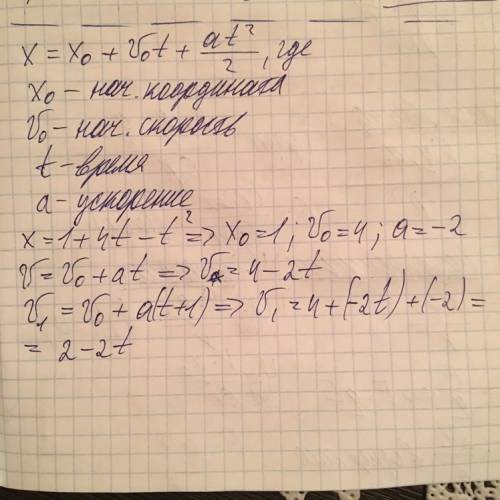 x = x₀ + v₀t + at²/2, где
x₀ – нач. координата
v₀ – нач. скорость
t – время
a – ускорение
x = 1 + 4t – t² => x₀ = 1; v₀ = 4; a = –2
v = v₀ + at => v = 4 – 2t
v₁ = v₀ + a(t+1) => v₁ = 4 + (–2t) + (–2) =
= 2 – 2t